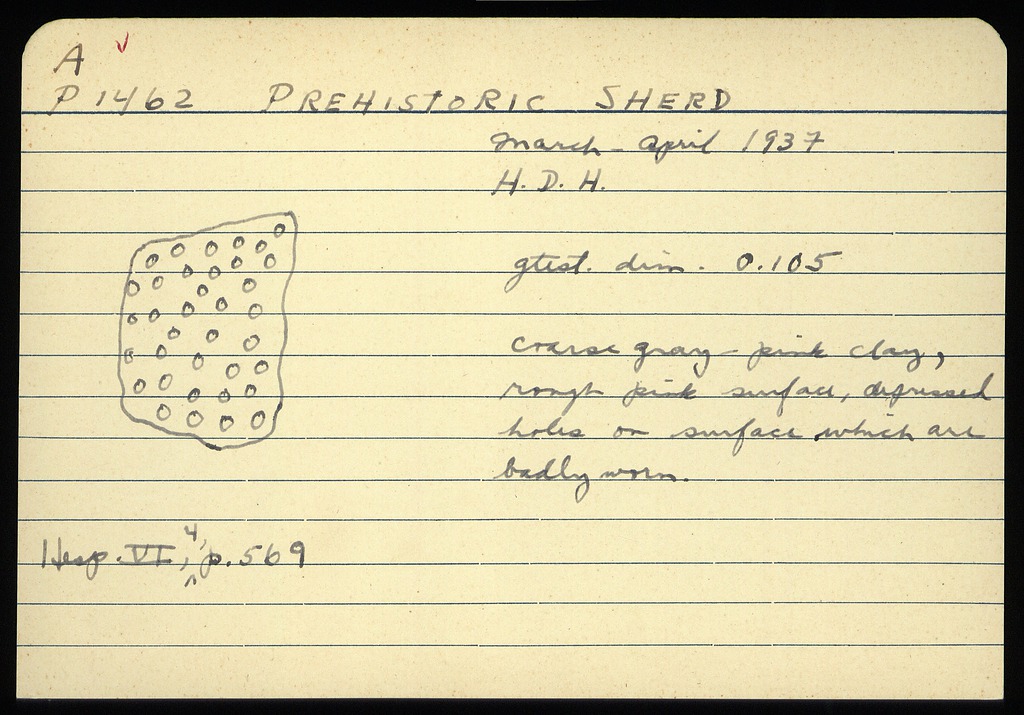 A ✓
P 1462 PREHISTORIC SHERD
March - April 1937
H. D. H.
gtest. dim. 0.105
coarse gray-pink clay,
rough pink surface, depressed
holes on surface which are
badly worn.
Hesp. VI, 4, p. 569